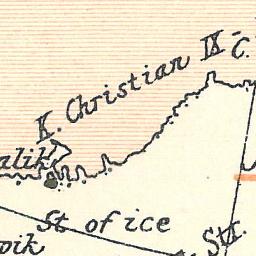 K. Christian IX
C.
alik
St of ice
Str.
vik